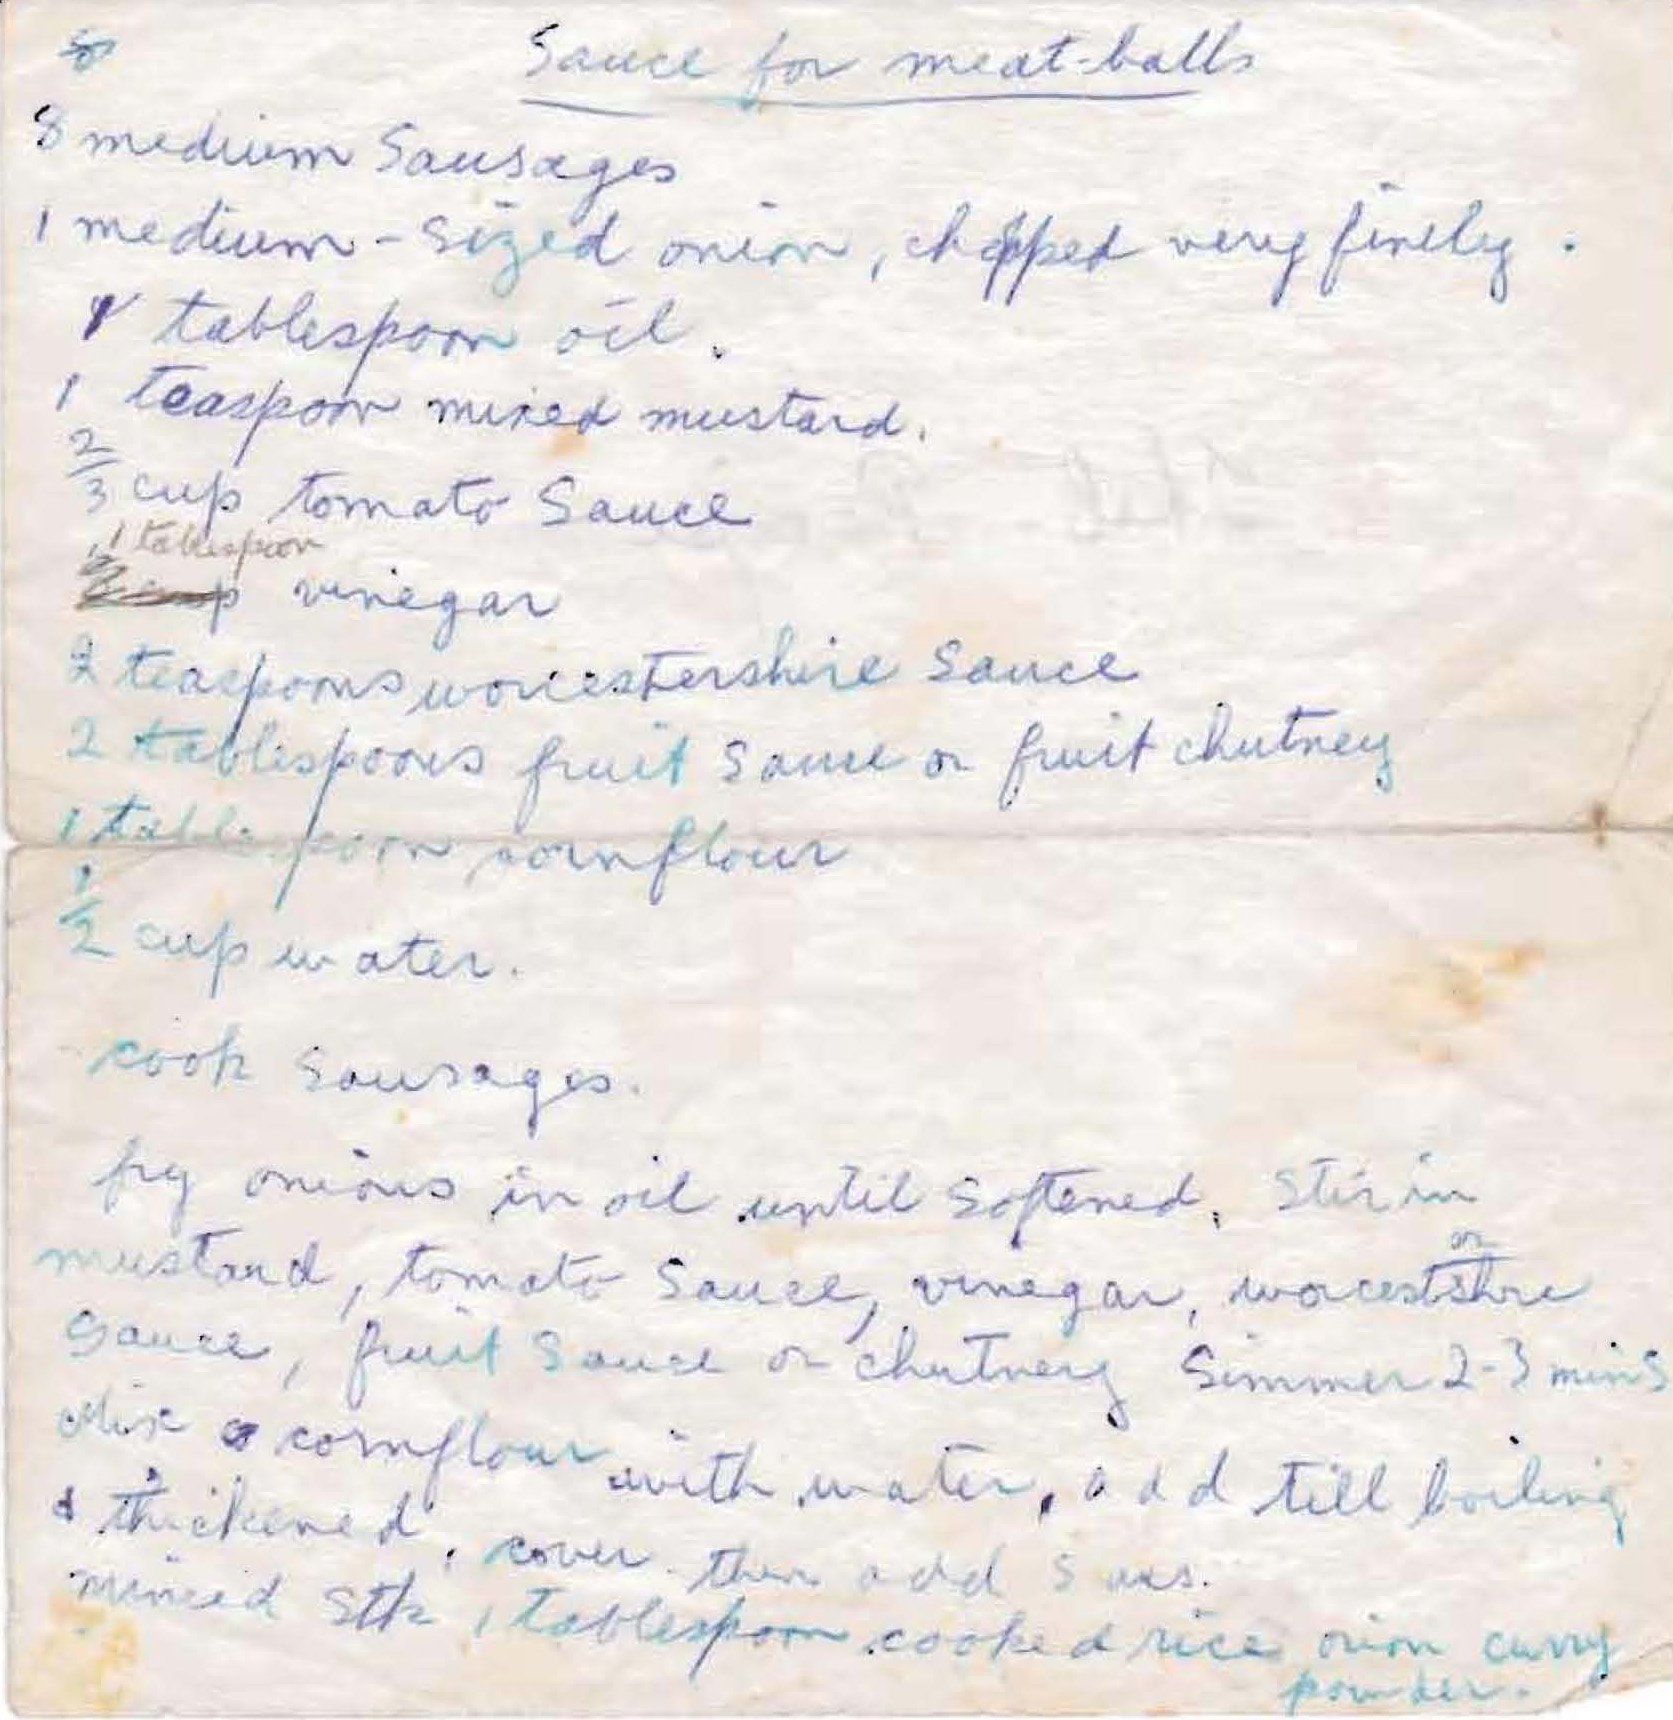 Sauce for meat-balls
8 medium Sausages
1 medium-sized onion, chopped very finely.
1 tablespoon oil.
1 teaspoon mixed mustard.
2/3 cup tomato Sauce
1 tablespoon
vinegar
2 teaspoons worcestershire Sauce
2 tablespoons fruit Sauce or fruit chutney
1 tablespoon cornflour
1/2 cup water.
cook Sausages.
fry onions in oil until Softened, Stir in
mustard, tomato Sauce, vinegar, worcestshire
Sauce, fruit Sauce or chutney Simmer 2-3 mins
Mix cornflour with water, add till boiling
& thickened, cover then add Saus.
minced Stk 1 tablespoon cooked rice onion curry
powder.